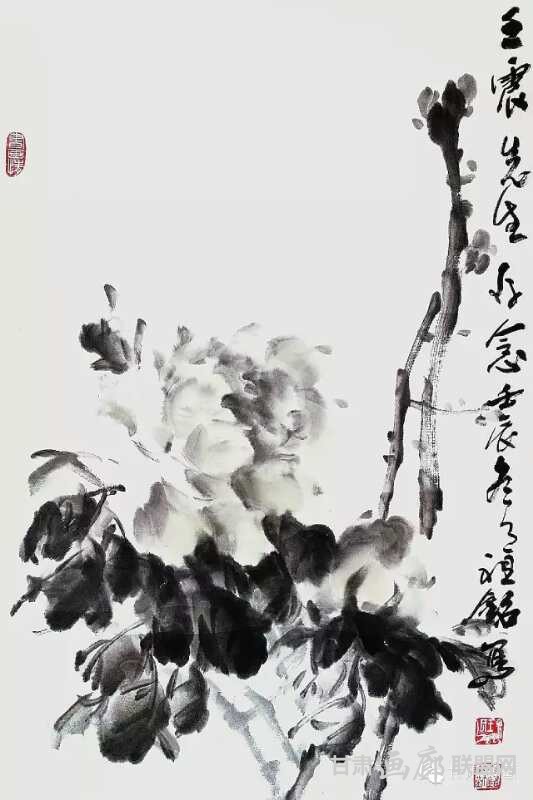 王震先生存念壬辰冬月祖铭写
甘肃画廊联盟网